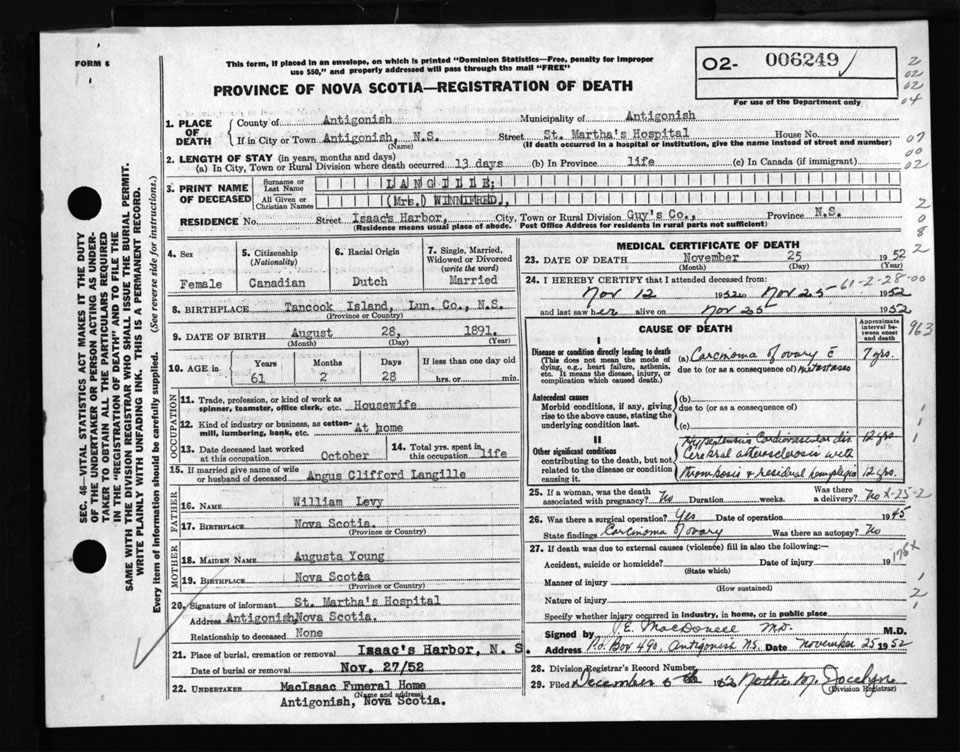 FORM 6
This form, if placed in an envelope, on which is printed "Dominion Statistics—Free, penalty for improper
use $50," and properly addressed will pass through the mail "FREE"
O2- 006249
For use of the Department only
PROVINCE OF NOVA SCOTIA—REGISTRATION OF DEATH
SEC. 46—VITAL STATISTICS ACT MAKES IT THE DUTY
OF THE UNDERTAKER OR PERSON ACTING AS UNDER-
TAKER TO OBTAIN ALL THE PARTICULARS REQUIRED
IN THE "REGISTRATION OF DEATH" AND TO FILE THE
SAME WITH THE DIVISION REGISTRAR WHO SHALL ISSUE THE BURIAL PERMIT.
WRITE PLAINLY WITH UNFADING INK. THIS IS A PERMANENT RECORD.
Every item of information should be carefully supplied. (See reverse side for instructions.)
1. PLACE OF DEATH
County of Antigonish Municipality of Antigonish
If in City or Town Antigonish, N.S. Street St. Martha's Hospital House No.
(Name) (If death occurred in a hospital or institution, give the name instead of street and number)
2. LENGTH OF STAY (in years, months and days)
(a) In City, Town or Rural Division where death occurred 13 days (b) In Province life (c) In Canada (if immigrant)
3. PRINT NAME OF DECEASED
Surname or Last Name LANGILLE,
All Given or Christian Names (Mrs.) WINNIFRED,
RESIDENCE No. Street Isaac's Harbor, City, Town or Rural Division Guy's Co., Province N.S.
(Residence means usual place of abode. Post Office Address for residents in rural parts not sufficient)
4. Sex Female
5. Citizenship (Nationality) Canadian
6. Racial Origin Dutch
7. Single, Married, Widowed or Divorced (write the word) Married
8. BIRTHPLACE Tancook Island, Lun. Co., N.S.
(Province or Country)
9. DATE OF BIRTH August 28, 1891.
(Month) (Day) (Year)
10. AGE in Years 61 Months 2 Days 28 If less than one day old hrs. or min.
OCCUPATION
11. Trade, profession, or kind of work as
spinner, teamster, office clerk, etc. Housewife
12. Kind of industry or business, as cotton-
mill, lumbering, bank, etc. At home
13. Date deceased last worked
at this occupation October
14. Total yrs. spent in
this occupation life
15. If married give name of wife
or husband of deceased Angus Clifford Langille
FATHER
16. NAME William Levy
17. BIRTHPLACE Nova Scotia.
(Province or Country)
MOTHER
18. MAIDEN NAME Augusta Young
19. BIRTHPLACE Nova Scotia
(Province or Country)
20. Signature of informant St. Martha's Hospital
Address Antigonish, Nova Scotia.
Relationship to deceased None
21. Place of burial, cremation or removal Isaac's Harbor, N. S.
Date of burial or removal Nov. 27/52
22. UNDERTAKER MacIsaac Funeral Home
(Name and address)
Antigonish, Nova Scotia.
MEDICAL CERTIFICATE OF DEATH
23. DATE OF DEATH November 25 1952
(Month) (Day) (Year)
24. I HEREBY CERTIFY that I attended deceased from:
Nov 12 1952 to Nov 25 1952
61-2-28-00
and last saw her alive on Nov 25 1952
CAUSE OF DEATH
Approximate interval between onset and death
I
Disease or condition directly leading to death
(This does not mean the mode of
dying, e.g., heart failure, asthenia,
etc. It means the disease, injury, or
complication which caused death.)
(a) Carcinoma of ovary c 7 yrs.
due to (or as a consequence of) metastases
Antecedent causes
Morbid conditions, if any, giving
rise to the above cause, stating the
underlying condition last.
(b)
due to (or as a consequence of)
(c)
II
Other significant conditions
contributing to the death, but not
related to the disease or condition
causing it.
Hypertensive Cardiovascular dis. 12 yrs
Cerebral atherosclerosis with
thrombosis & residual hemiplegia 12 yrs.
25. If a woman, was the death
associated with pregnancy? No Duration weeks. Was there
a delivery? No
X-25-2
26. Was there a surgical operation? Yes Date of operation 1945
State findings Carcinoma of ovary Was there an autopsy? No
27. If death was due to external causes (violence) fill in also the following:—
Accident, suicide or homicide? Date of injury 19
(State which)
Manner of injury
(How sustained)
Nature of injury
Specify whether injury occurred in industry, in home, or in public place
Signed by E. MacDonell MD. M.D.
Address P.O. Box 490, Antigonish N.S. Date November 25 1952
28. Division Registrar's Record Number
29. Filed December 5th 1952 Nettie M. Jocelyn
(Division Registrar)
2
02
02
04
07
00
02
2
0
8
2
963
1
1
1
176X
1
2
1